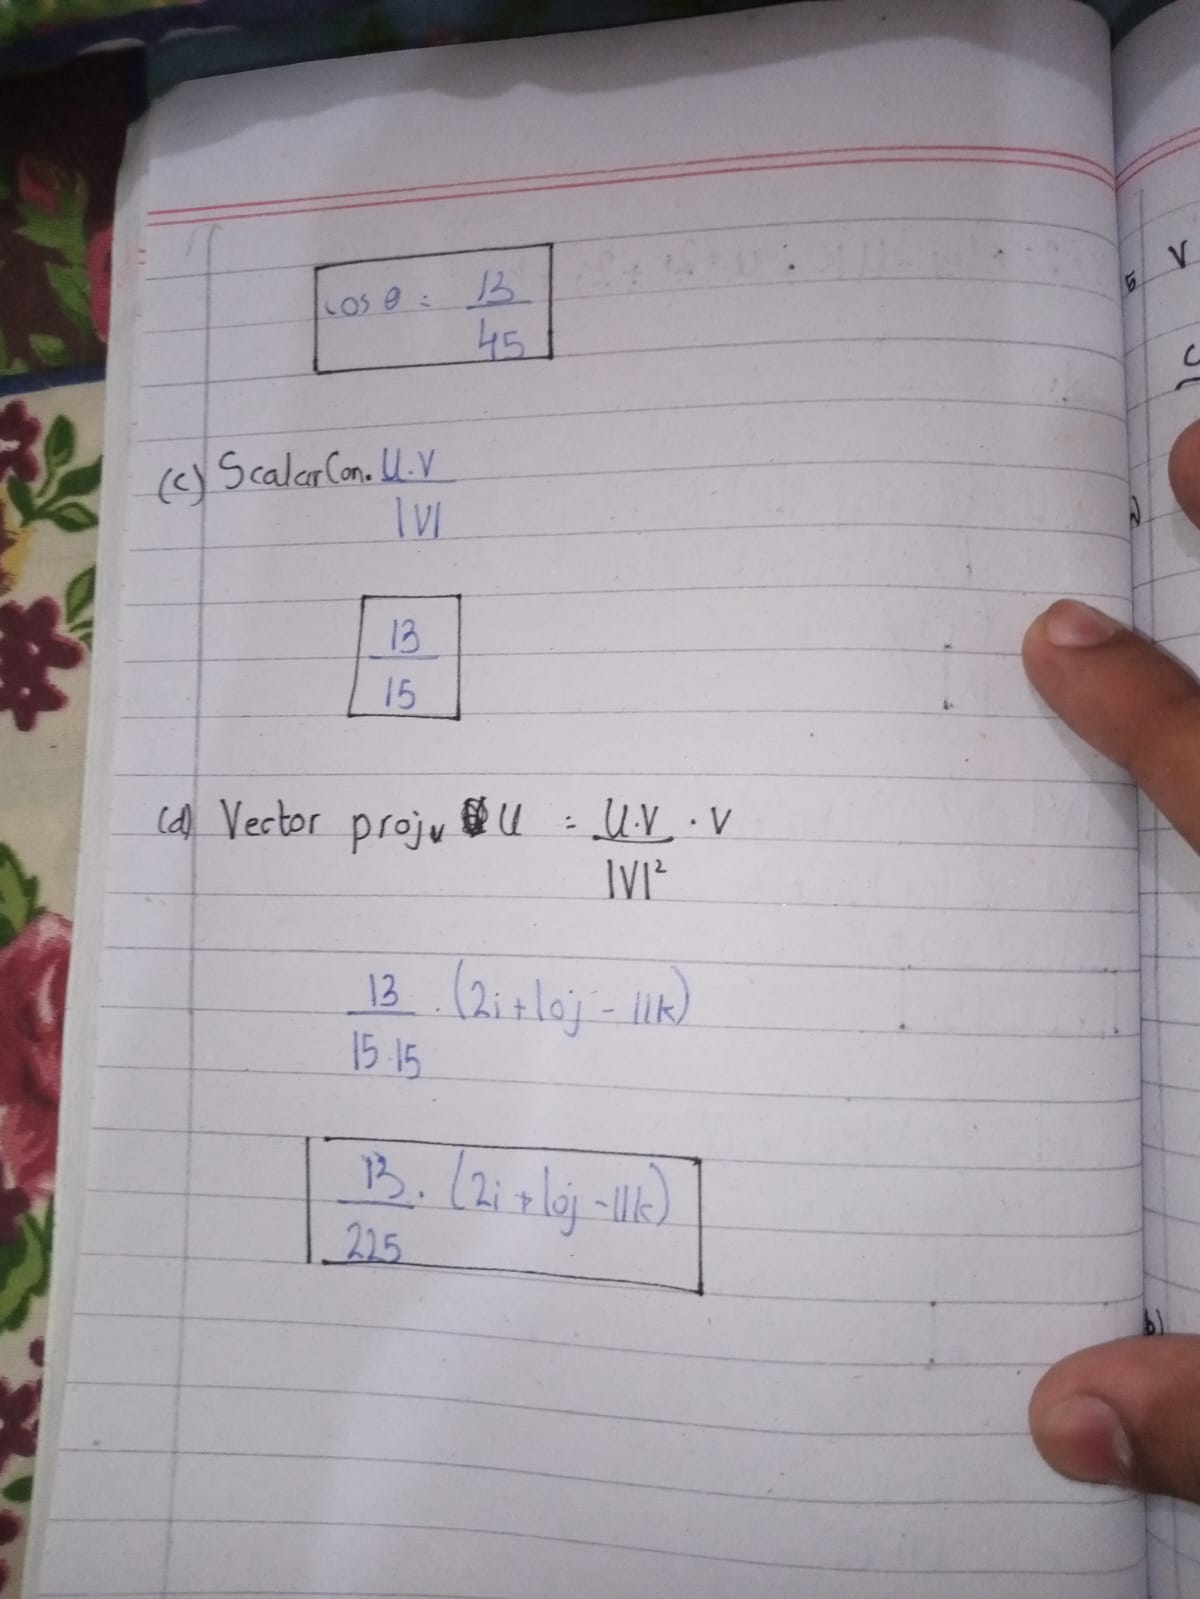 cos θ = 13/45
(c) Scalar Con. U.V/|V|
13/15
(d) Vector projᵥ U = U.V/|V|² . V
13/15.15 . (2i + 10j - 11k)
13/225 . (2i + 10j - 11k)
V
5
b)